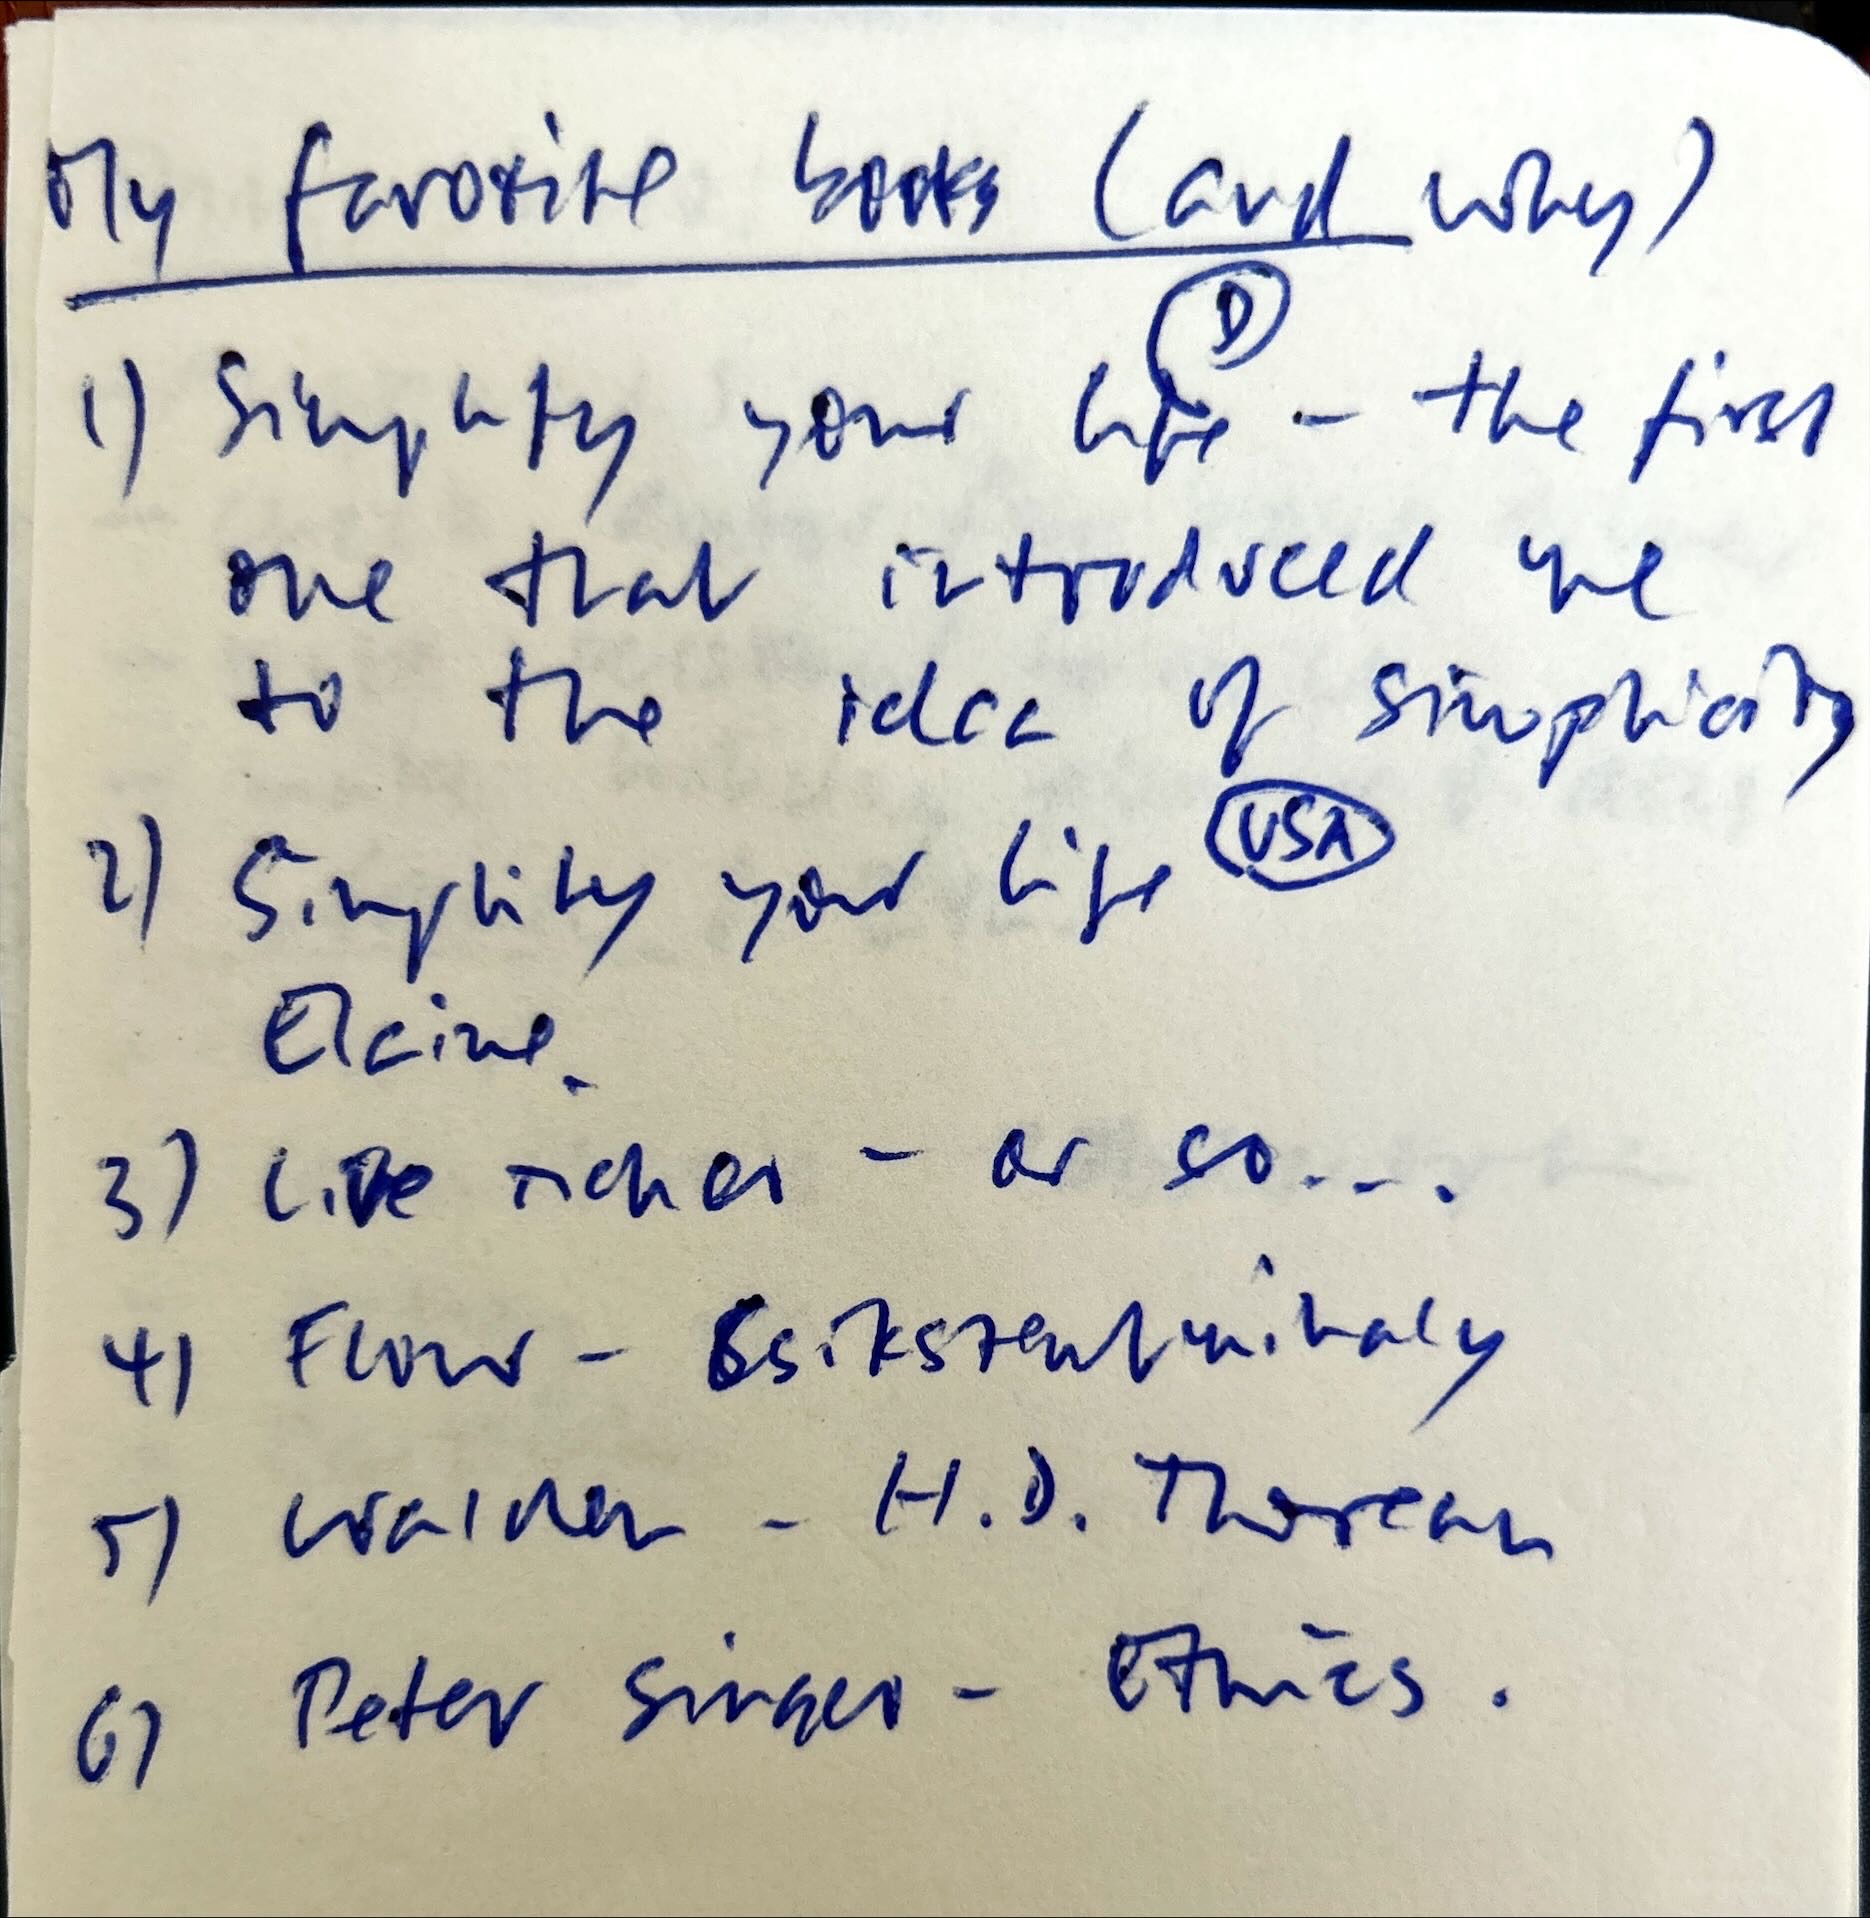 My favorite books (and why)
1) Simplify your life (D) - the first
one that introduced me
to the idea of simplicity
2) Simplify your life (USA)
Elaine.
3) Live richer - or so....
4) Flow - Csikszentmihaly
5) Walden - H.D. Thoreau
6) Peter Singer - Ethics.